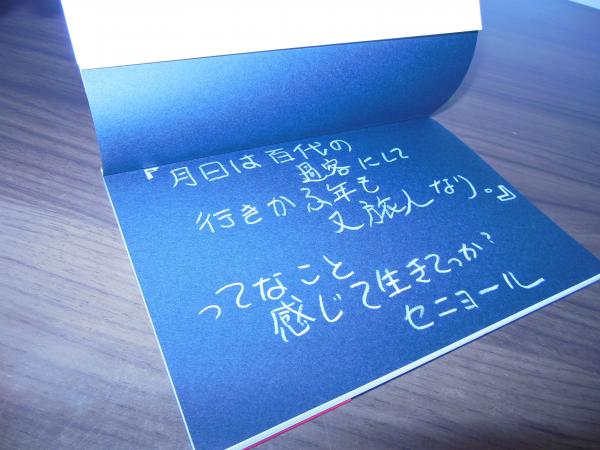 『月日は百代の
過客にして
行きかふ年も
又旅人なり。』
ってなこと
感じて生きてっか？
セニョール